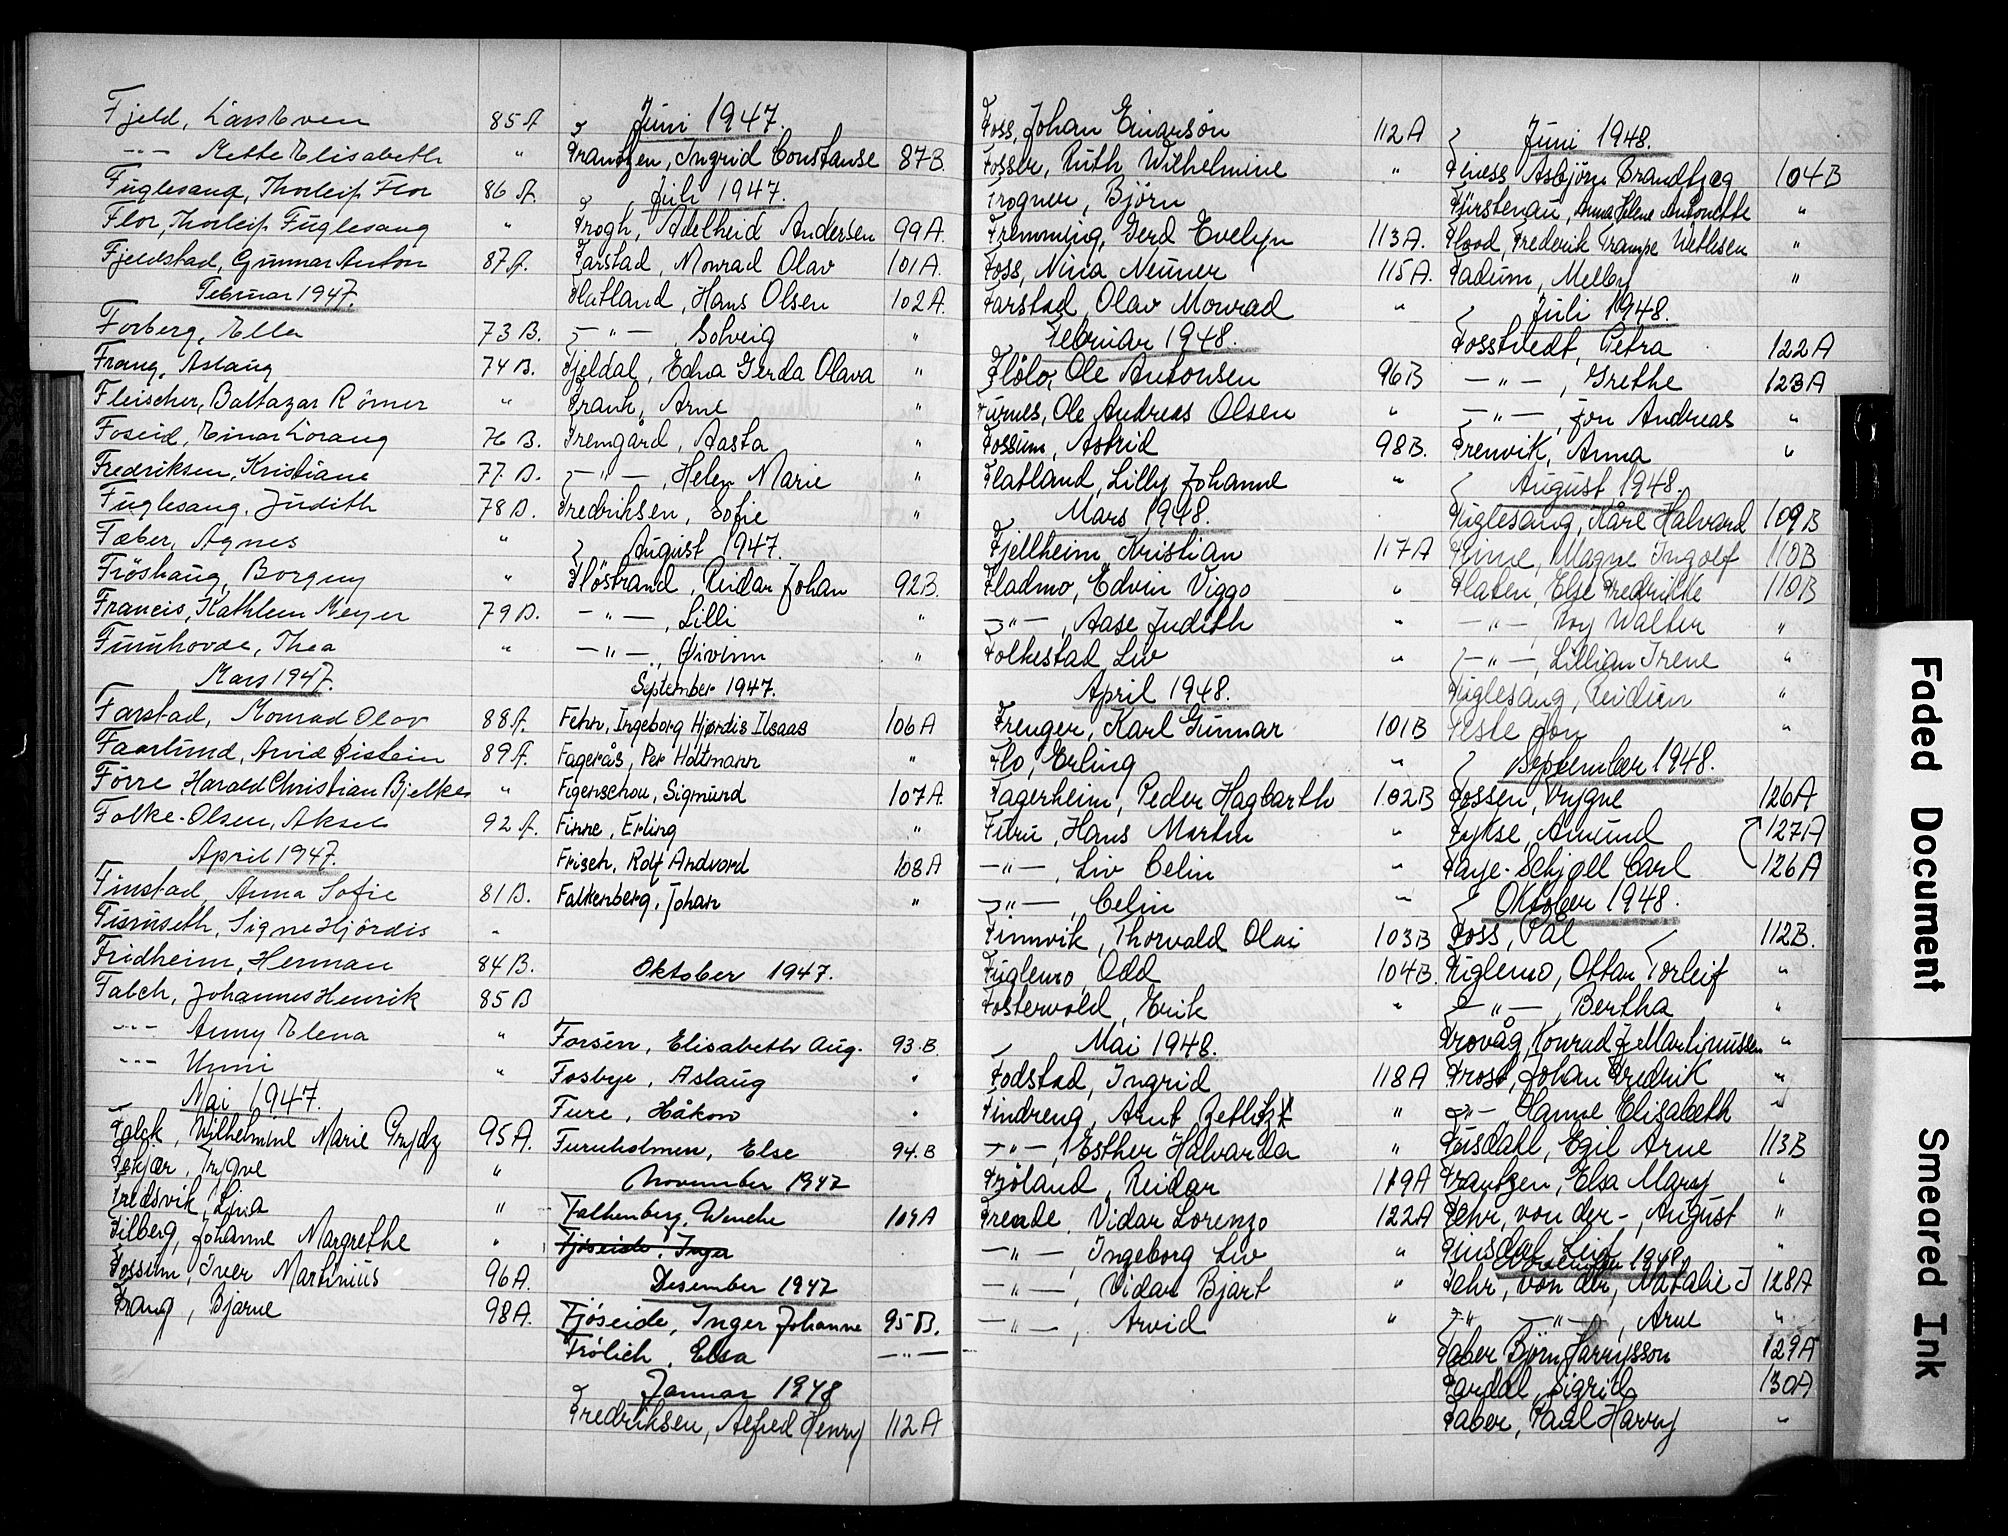 Fjeld, Lars Even 85 A
-"- Mette Elisabeth "
Fuglesang, Thorleif Flor 86 A.
Flor, Thorleif Fuglesang "
Fjeldstad, Gunnar Anton 87 A.
Februar 1947.
Forberg, Ella 73 B.
Frang, Aslaug 74 B.
Fleischer, Baltazar Römer "
Foseid, Einar Lorang 76 B.
Fredriksen, Kristiane 77. B.
Fuglesang, Judith 78 B.
Fæber, Agnes "
Fröshaug, Borgny "
Francis, Kathleen Meyer 79 B.
Furuhovde, Thea "
Mars 1947.
Farstad, Monrad Olav 88 A.
Faarlund, Arvid Øistein 89 A.
Förre Harald Christian Bjelke "
Folke-Olsen, Aksel 92 A.
April 1947.
Finstad, Anna Sofie 81 B.
Furuseth, Signe Hjördis "
Fridheim, Herman 84 B.
Falch, Johannes Henrik 85 B
-"- Anny Elena "
-"- Unni "
Mai 1947.
Falck, Wilhelmine Marie Prydz 95 A.
Fekjær, Trygve "
Fredsvik, Lina "
Filberg, Johanne Margrethe "
Fossum, Iver Martinius 96 A.
Frang, Bjarne 98 A.
Juni 1947.
Frantzen, Ingrid Constanse 87 B.
Juli 1947.
Frogh, Adelheid Andersen 99 A.
Farstad, Monrad Olav 101 A.
Flatland, Hans Olsen 102 A.
- " -, Solveig "
Fjeldal, Edna Gerda Olava "
Frank, Arne "
Fremgård, Aasta "
- " -, Helen Marie "
Fredriksen, Sofie "
August 1947.
Flöstrand, Reidar Johan 92 B.
- " -, Lilli "
- " -, Øivinn "
September 1947.
Fehn, Ingeborg Hjørdis Ilsaas 106 A
Fagerås, Per Holtmann "
Figenschou, Sigmund 107 A.
Finne, Erling "
Frisch, Rolf Andvord 108 A
Falkenberg, Johan "
Oktober 1947.
Forsén, Elisabeth Aug. 93. B
Fosbye, Aslaug "
Fure, Håkon "
Furuholmen, Else 94. B
November 1947
Falkenberg, Wenche 109 A
Fjøseide, Inger
Desember 1947
Fjøseide, Inger Johanne 95 B.
Frölich, Elsa - " -
Januar 1948
Fredriksen, Alfred Henry 112 A
Foss, Johan Einarson 112 A
Fosser, Ruth Wilhelmine "
Frogner, Björn
Fremming, Gerd Evelyn 113 A.
Foss, Nina Neuner 115 A.
Farstad, Olav Monrad "
Februar 1948.
Flölo, Ole Antonsen 96 B
Furnes, Ole Andreas Olsen "
Fossum, Astrid 98 B.
Flatland, Lilly Johanne "
Mars 1948.
Fjellheim, Kristian 117 A
Fladmo, Edvin Viggo "
- " -, Aase Judith "
Folkestad, Liv "
April 1948.
Frenger, Karl Gunnar 101 B
Flo, Erling "
Fagerheim, Peder Hagbarth 102 B
Furu, Hans Martin "
- " -, Liv Celin "
- " -, Celin "
Finnvik, Thorvald Olai 103 B
Fuglemo, Odd 104 B.
Fostervold, Erik "
Mai 1948.
Fodstad, Ingrid 118 A
Findreng, Arnt Retlitzk "
- " -, Esther Halvarda "
Fröland, Reidar 119 A
Frende, Vidar Lorenzo 122 A
- " -, Ingeborg Liv "
- " -, Vidar Bjart "
- " -, Arvid "
Juni 1948.
Finess, Asbjörn Brandtzeg 104 B
Fürstenau, Anna Helene Antonette "
Flood, Frederik Trampe Wethlesen "
Fadum, Melby "
Juli 1948.
Fosstvedt, Petra 122 A
- " -, Grethe 123 A
- " -, Jon Andreas "
Frenvik, Anna "
August 1948.
Fuglesang, Kåre Halvard 109 B
Finne, Magne Ingolf 110 B
Flaten, Else Fredrikke 110 B
- " -, Roy Walter "
- " -, Lillian Irene "
Fuglesang, Reidun "
Feste Jon "
September 1948.
Fossen, Trygve 126 A
Fykse, Amund 127 A
Faye-Schjøll Carl 126 A
Oktober 1948.
Foss, Pål 112 B.
Fuglemo, Ottar Torleif "
- " -, Bertha "
Frovåg, Konrad J. Martinussen "
Frost, Johan Fredrik "
- " - Hanne Elisabeth "
Furdahl, Egil Arne 113 B
Frantzen, Elsa Mary "
Fehr, von der -, August "
Finsdal, Leif "
November 1948
Fehr, von der, Natalie J 128 A
- " - - " -, Arne "
Faber Bjørn Harrysson 129 A
Fardal, Sigrid 130 A
Faber, Paul Harry "
Faded Document
Smeared Ink